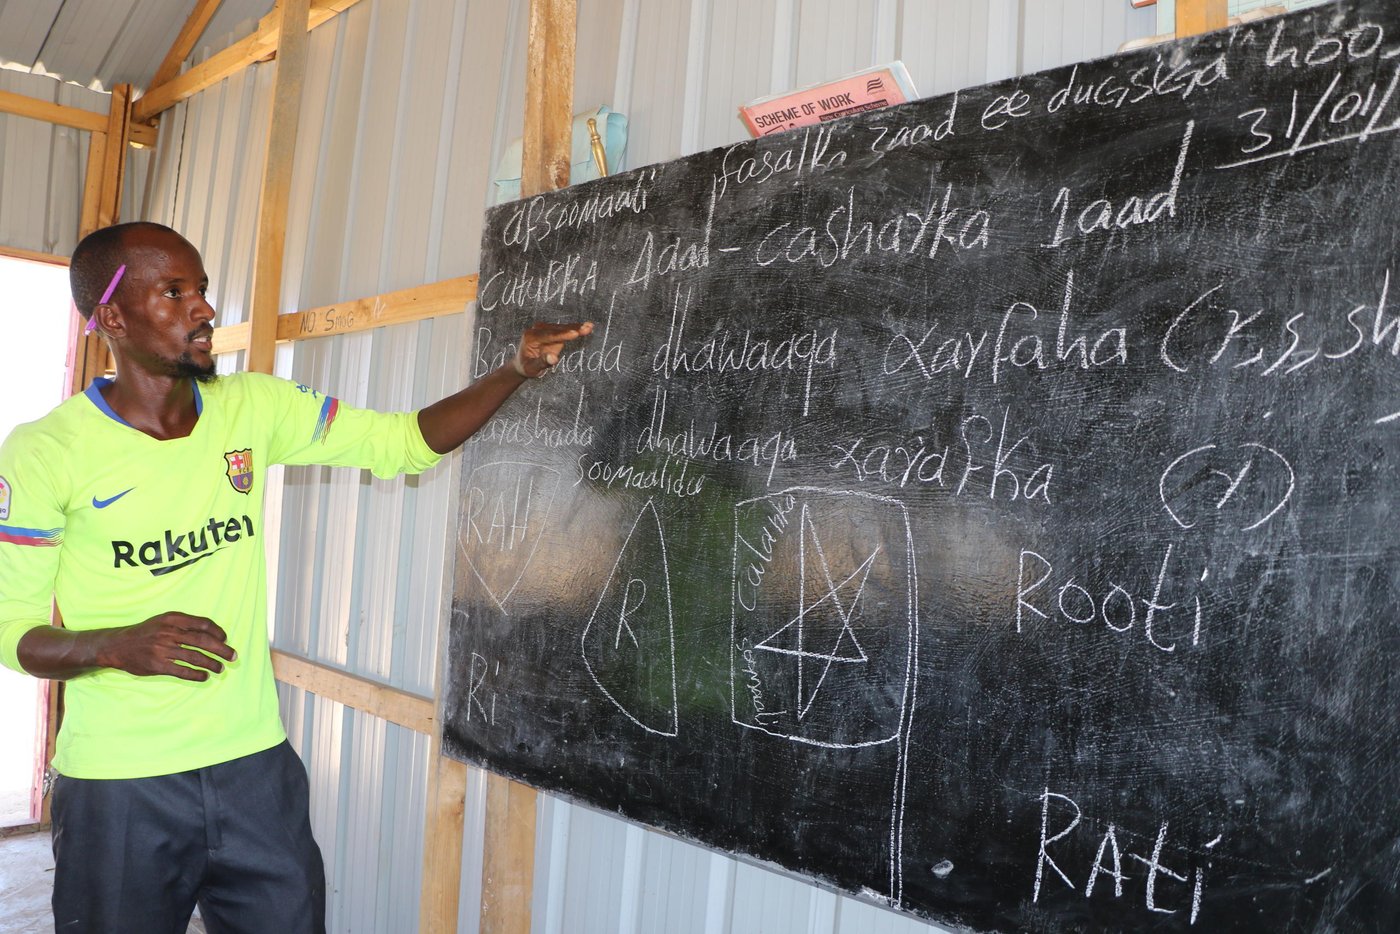 SCHEME OF WORK
afsoomaali fasalka 2aad ee dugsiga hoo
31/01/
CUTUBKA 1aad - casharka 1aad
dhawaaqa xarfaha (r, s, sh
Barashada dhawaaqa xarafka (r)
soomaalida
RAH
R
calanka
Rooti
Ri
RAti
NO SmOG
Rakuten